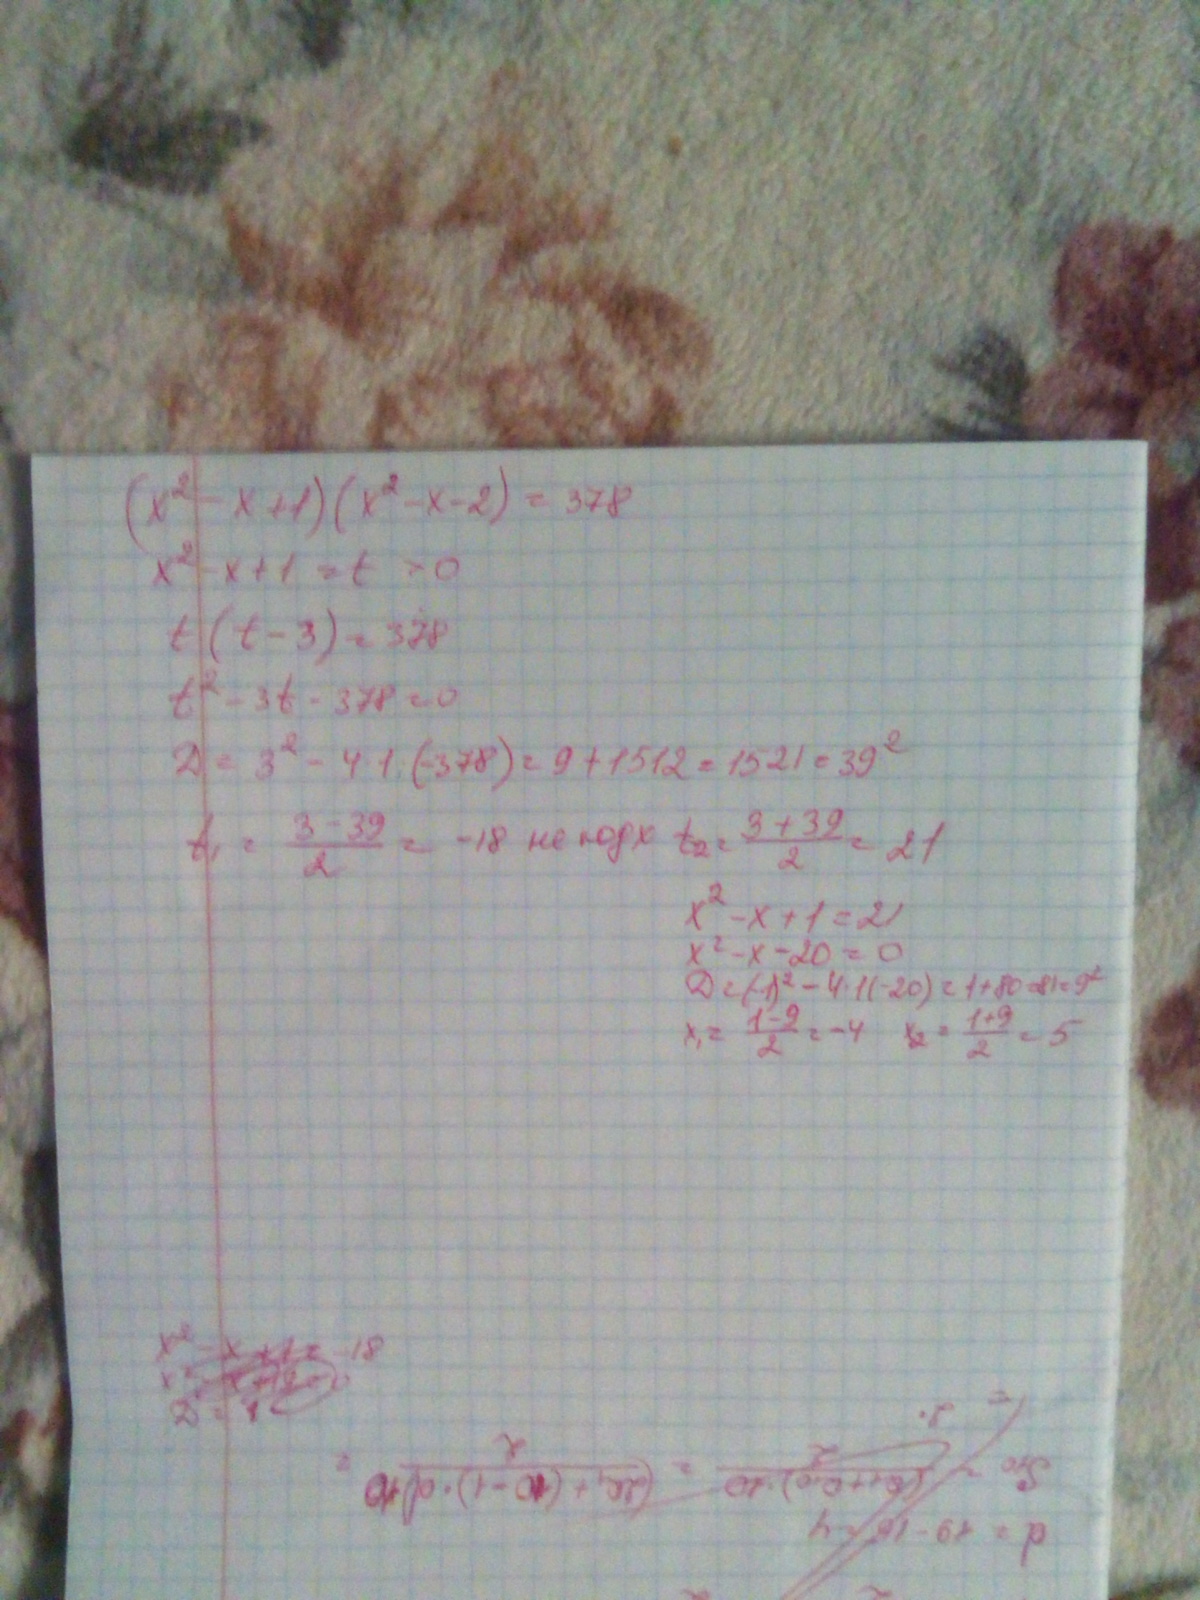 (x² - x + 1)(x² - x - 2) = 378
x² - x + 1 = t > 0
t(t - 3) = 378
t² - 3t - 378 = 0
D = 3² - 4·1·(-378) = 9 + 1512 = 1521 = 39²
t₁ = (3 - 39)/2 = -18 не подх t₂ = (3 + 39)/2 = 21
x² - x + 1 = 21
x² - x - 20 = 0
D = (-1)² - 4·1(-20) = 1 + 80 = 81 = 9²
x₁ = (1 - 9)/2 = -4 x₂ = (1 + 9)/2 = 5
x² - x + 1 = -18
D = 1